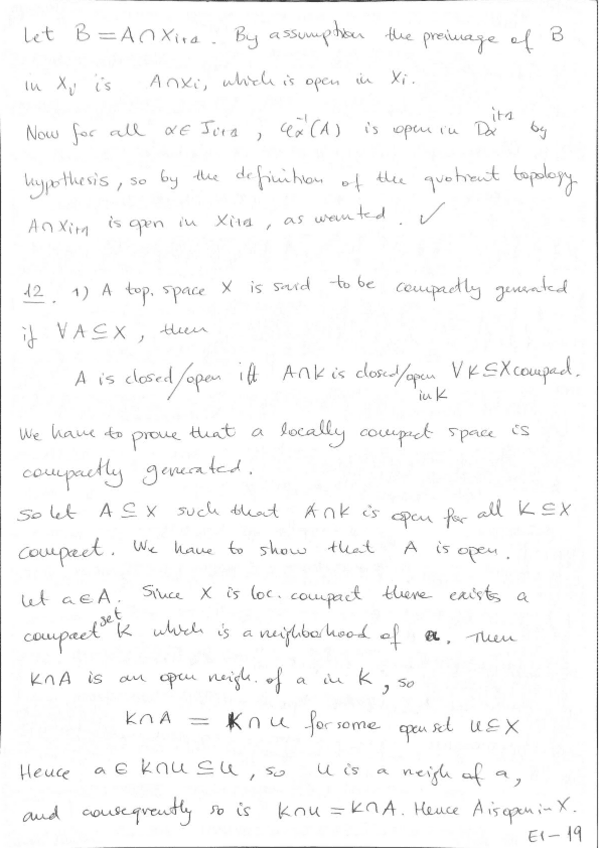 Let B = A ∩ X_{i+1}. By assumption the preimage of B
in X_i is A∩X_i, which is open in X_i.
Now for all α ∈ J_{i+1}, φ_α^{-1}(A) is open in D_α^{i+1} by
hypothesis, so by the definition of the quotient topology
A∩X_{i+1} is open in X_{i+1}, as wanted. ✓
12. 1) A top. space X is said to be compactly generated
if ∀ A ⊆ X, then
A is closed/open iff A∩K is closed/open in K ∀ K ⊆ X compact.
We have to prove that a locally compact space is
compactly generated.
So let A ⊆ X such that A∩K is open for all K ⊆ X
compact. We have to show that A is open.
Let a ∈ A. Since X is loc. compact there exists a
compact set K which is a neighborhood of a. Then
K∩A is an open neigh. of a in K, so
K∩A = K∩U for some open set U ⊆ X
Hence a ∈ K∩U ⊆ U, so U is a neigh of a,
and consequently so is K∩U = K∩A. Hence A is open in X.
E1-19